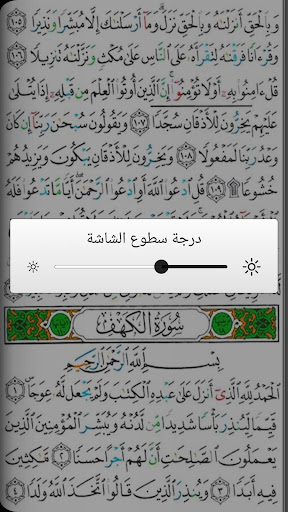 وَبِالْحَقِّ أَنزَلْنَٰهُ وَبِالْحَقِّ نَزَلَ وَمَا أَرْسَلْنَٰكَ إِلَّا مُبَشِّرًا وَنَذِيرًا ١٠٥
وَقُرْءَانًا فَرَقْنَٰهُ لِتَقْرَأَهُ عَلَى النَّاسِ عَلَىٰ مُكْثٍ وَنَزَّلْنَٰهُ تَنزِيلًا ١٠٦
قُلْ ءَامِنُوا بِهِ أَوْ لَا تُؤْمِنُوا إِنَّ الَّذِينَ أُوتُوا الْعِلْمَ مِن قَبْلِهِ إِذَا يُتْلَىٰ
عَلَيْهِمْ يَخِرُّونَ لِلْأَذْقَانِ سُجَّدًا ١٠٧ وَيَقُولُونَ سُبْحَٰنَ رَبِّنَا إِن كَانَ
وَعْدُ رَبِّنَا لَمَفْعُولًا ١٠٨ وَيَخِرُّونَ لِلْأَذْقَانِ يَبْكُونَ وَيَزِيدُهُمْ
خُشُوعًا ۩ ١٠٩ قُلِ ادْعُوا اللَّهَ أَوِ ادْعُوا الرَّحْمَٰنَ أَيًّا مَّا تَدْعُوا فَلَهُ
درجة سطوع الشاشة
سُورَةُ الْكَهْفِ
بِسْمِ اللَّهِ الرَّحْمَٰنِ الرَّحِيمِ
الْحَمْدُ لِلَّهِ الَّذِي أَنزَلَ عَلَىٰ عَبْدِهِ الْكِتَٰبَ وَلَمْ يَجْعَل لَّهُ عِوَجًا ١
قَيِّمًا لِّيُنذِرَ بَأْسًا شَدِيدًا مِّن لَّدُنْهُ وَيُبَشِّرَ الْمُؤْمِنِينَ الَّذِينَ
يَعْمَلُونَ الصَّٰلِحَٰتِ أَنَّ لَهُمْ أَجْرًا حَسَنًا ٢ مَّٰكِثِينَ
فِيهِ أَبَدًا ٣ وَيُنذِرَ الَّذِينَ قَالُوا اتَّخَذَ اللَّهُ وَلَدًا ٤